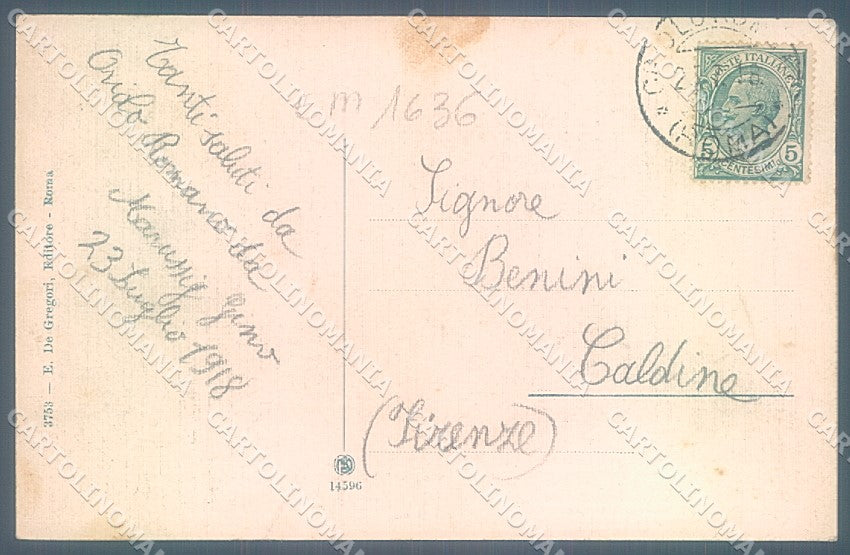 Tanti saluti da
Ovido Romano da
Marussig Gino
23 Luglio 1918
m 1636
Signore
Benini
Caldine
(Firenze)
POSTE ITALIANE
5 CENTESIMI 5
(ROMA)
3753 — E. De Gregori, Editore - Roma
14596
CARTOLINOMANIA